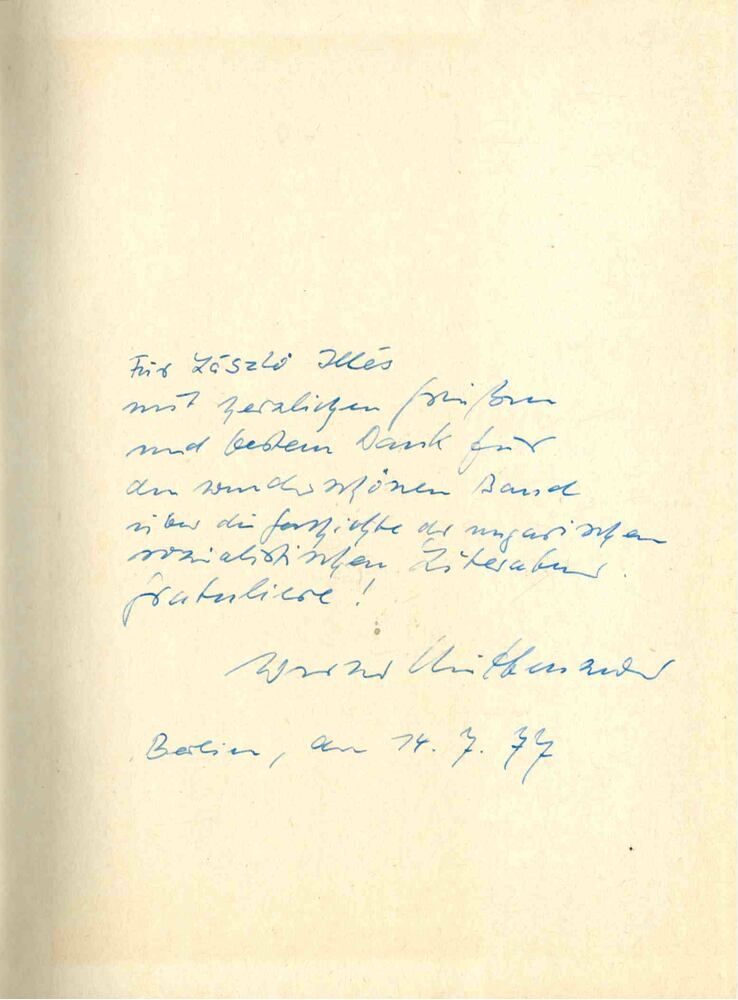 Für László Illés
mit herzlichen Grüßen
und bestem Dank für
den wunderschönen Band
über die Geschichte der ungarischen
sozialistischen Literatur.
Gratuliere!
Werner Mittenzwei
Berlin, den 14. 7. 77